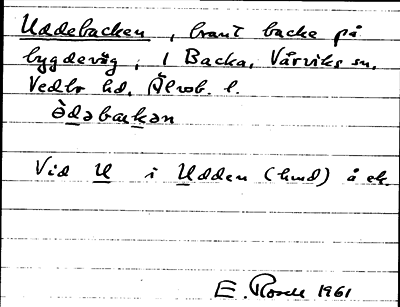 Uddebacken, brant backe på
bygdeväg, 1 Backa, Vårviks sn,
Vedbo hd, Älvsb. l.
òdəbakən
Vid U i Udden (hmd) å ek.
E. Rosell 1961